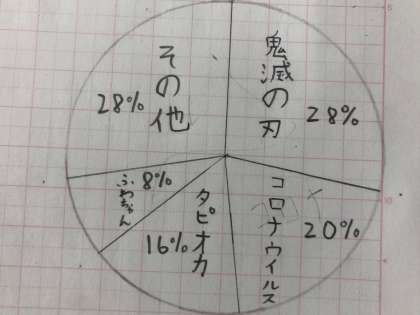 鬼滅の刃
28%
コロナウイルス
20%
タピオカ
16%
ふわちゃん
8%
その他
28%